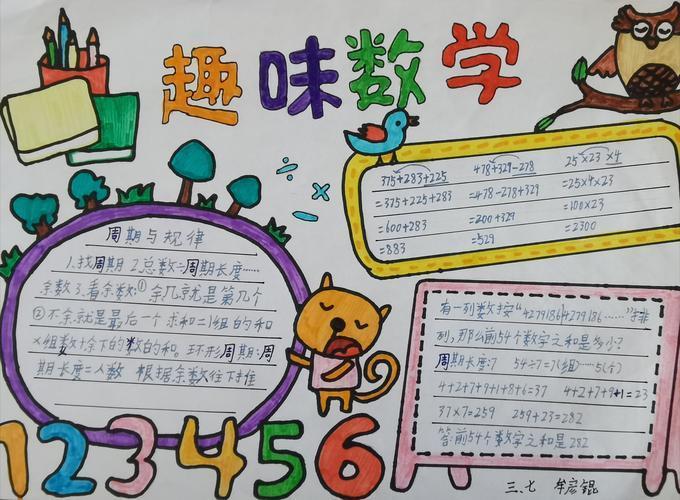 趣味数学
375+283+225
=375+225+283
=600+283
=883
478+329-278
=478-278+329
=200+329
=529
25×23×4
=25×4×23
=100×23
=2300
周期与规律
1.找周期 2.总数÷周期长度……
余数 3.看余数:①余几就是第几个
②不余就是最后一个 求和=1组的和
×组数+余下的数的和。环形周期:周
期长度=人数 根据余数往下推
有一列数按“4279186/4279186……”排
列,那么前54个数字之和是多少?
周期长度:7 54÷7=7(组)……5(个)
4+2+7+9+1+8+6=37 4+2+7+9+1=23
37×7=259 259+23=282
答:前54个数字之和是282
123456
三、七 牟宏锟